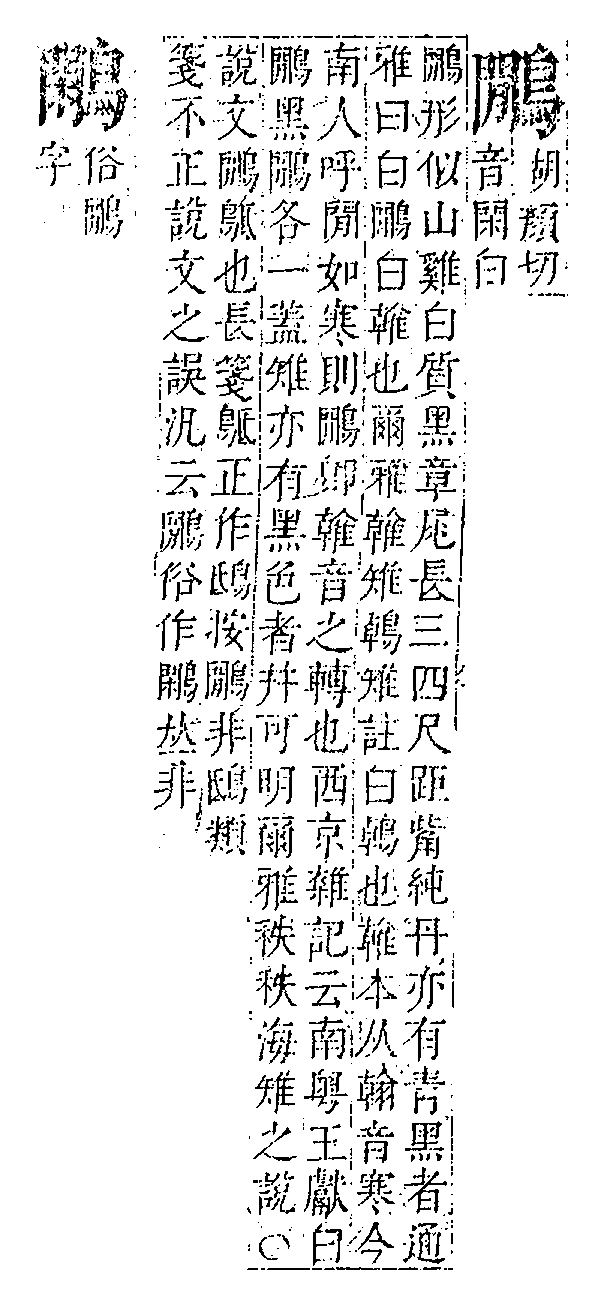 鷴
胡顏切
音閑白
鷴形似山雞白質黑章尾長三四尺距觜純丹亦有青黑者通
雅曰白鷴白雗也爾雅雗雉鵫雉註白鵫也雗本从翰音寒今
南人呼閒如寒則鷴卽雗音之轉也西京雜記云南粵王獻白
鷴黑鷴各一蓋雉亦有黑色者幷可明爾雅秩秩海雉之說○
說文鷴䲭也長箋䲭正作鴟按鷴非鴟類
箋不正說文之誤汎云鷴俗作鷳𠀤非
鷳
俗鷴
字